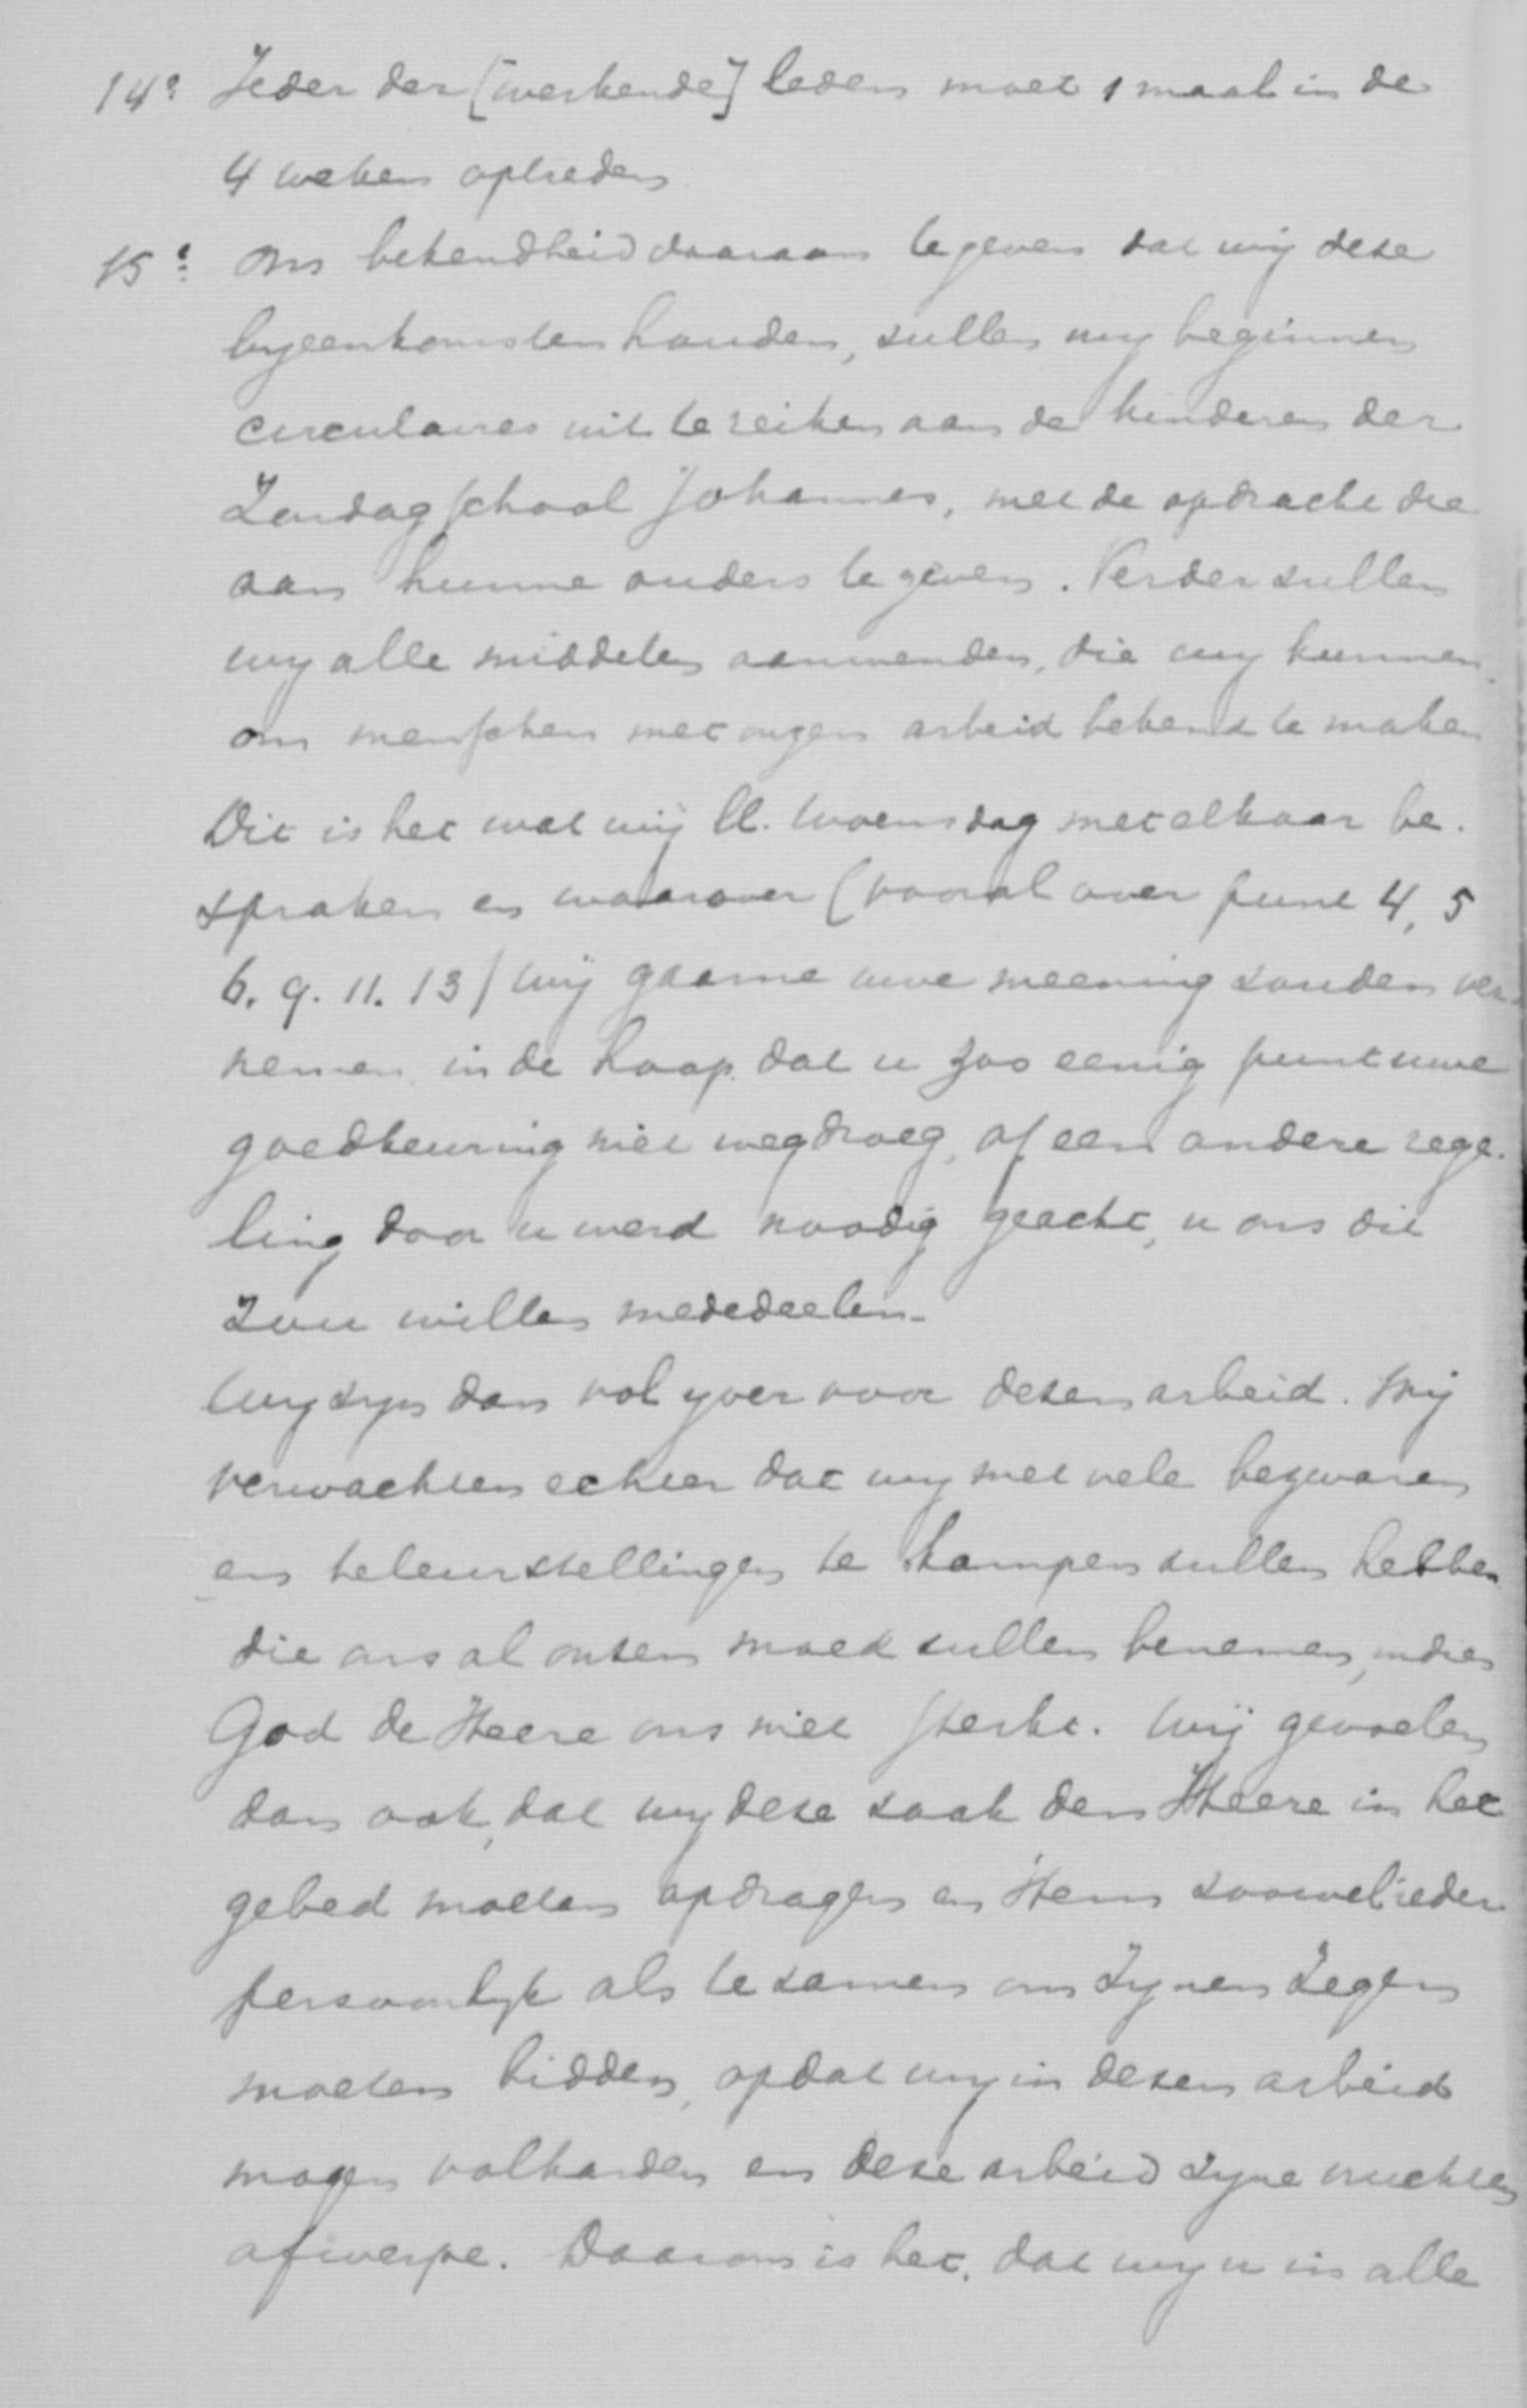 14º Ieder der [werkende] leden moet 1 maal in de
4 weken optreden
15º Om bekendheid daaraan te geven dat wij deze
byeenkomsten houden, zullen wy beginnen
circulaires uit te reiken aan de kinderen der
Zondagschool Johannes, met de opdracht die
aan hunne ouders te geven. Verder zullen
wy alle middelen aanwenden, die wy kunnen
om menschen met onzen arbeid bekend te maken
Dit is het wat wij ll. Woensdag met elkaar be-
spraken en waarover (vooral over punt 4, 5
6. 9. 11. 13) wij gaarne uwe meening zouden ver-
nemen, in de hoop dat u zoo eenig punt uwe
goedkeuring niet wegdroeg, of een andere rege-
ling door u werd noodig geacht, u ons dit
zou willen mededeelen.
Wy zyn dan vol yver voor dezen arbeid. Wij
verwachten echter dat wy met vele bezwaren
en teleurstellingen te kampen zullen hebben
die ons al onzen moed zullen benemen, indien
God de Heere ons niet sterkt. Wij gevoelen
dan ook, dat wy deze zaak den Heere in het
gebed moeten opdragen en Hem zoowel ieder
persoonlyk als te zamen om Zynen Zegen
moeten bidden, opdat wy in dezen arbeid
mogen volharden en deze arbeid zyne vruchten
afwerpe. Daarom is het, dat wy u in alle